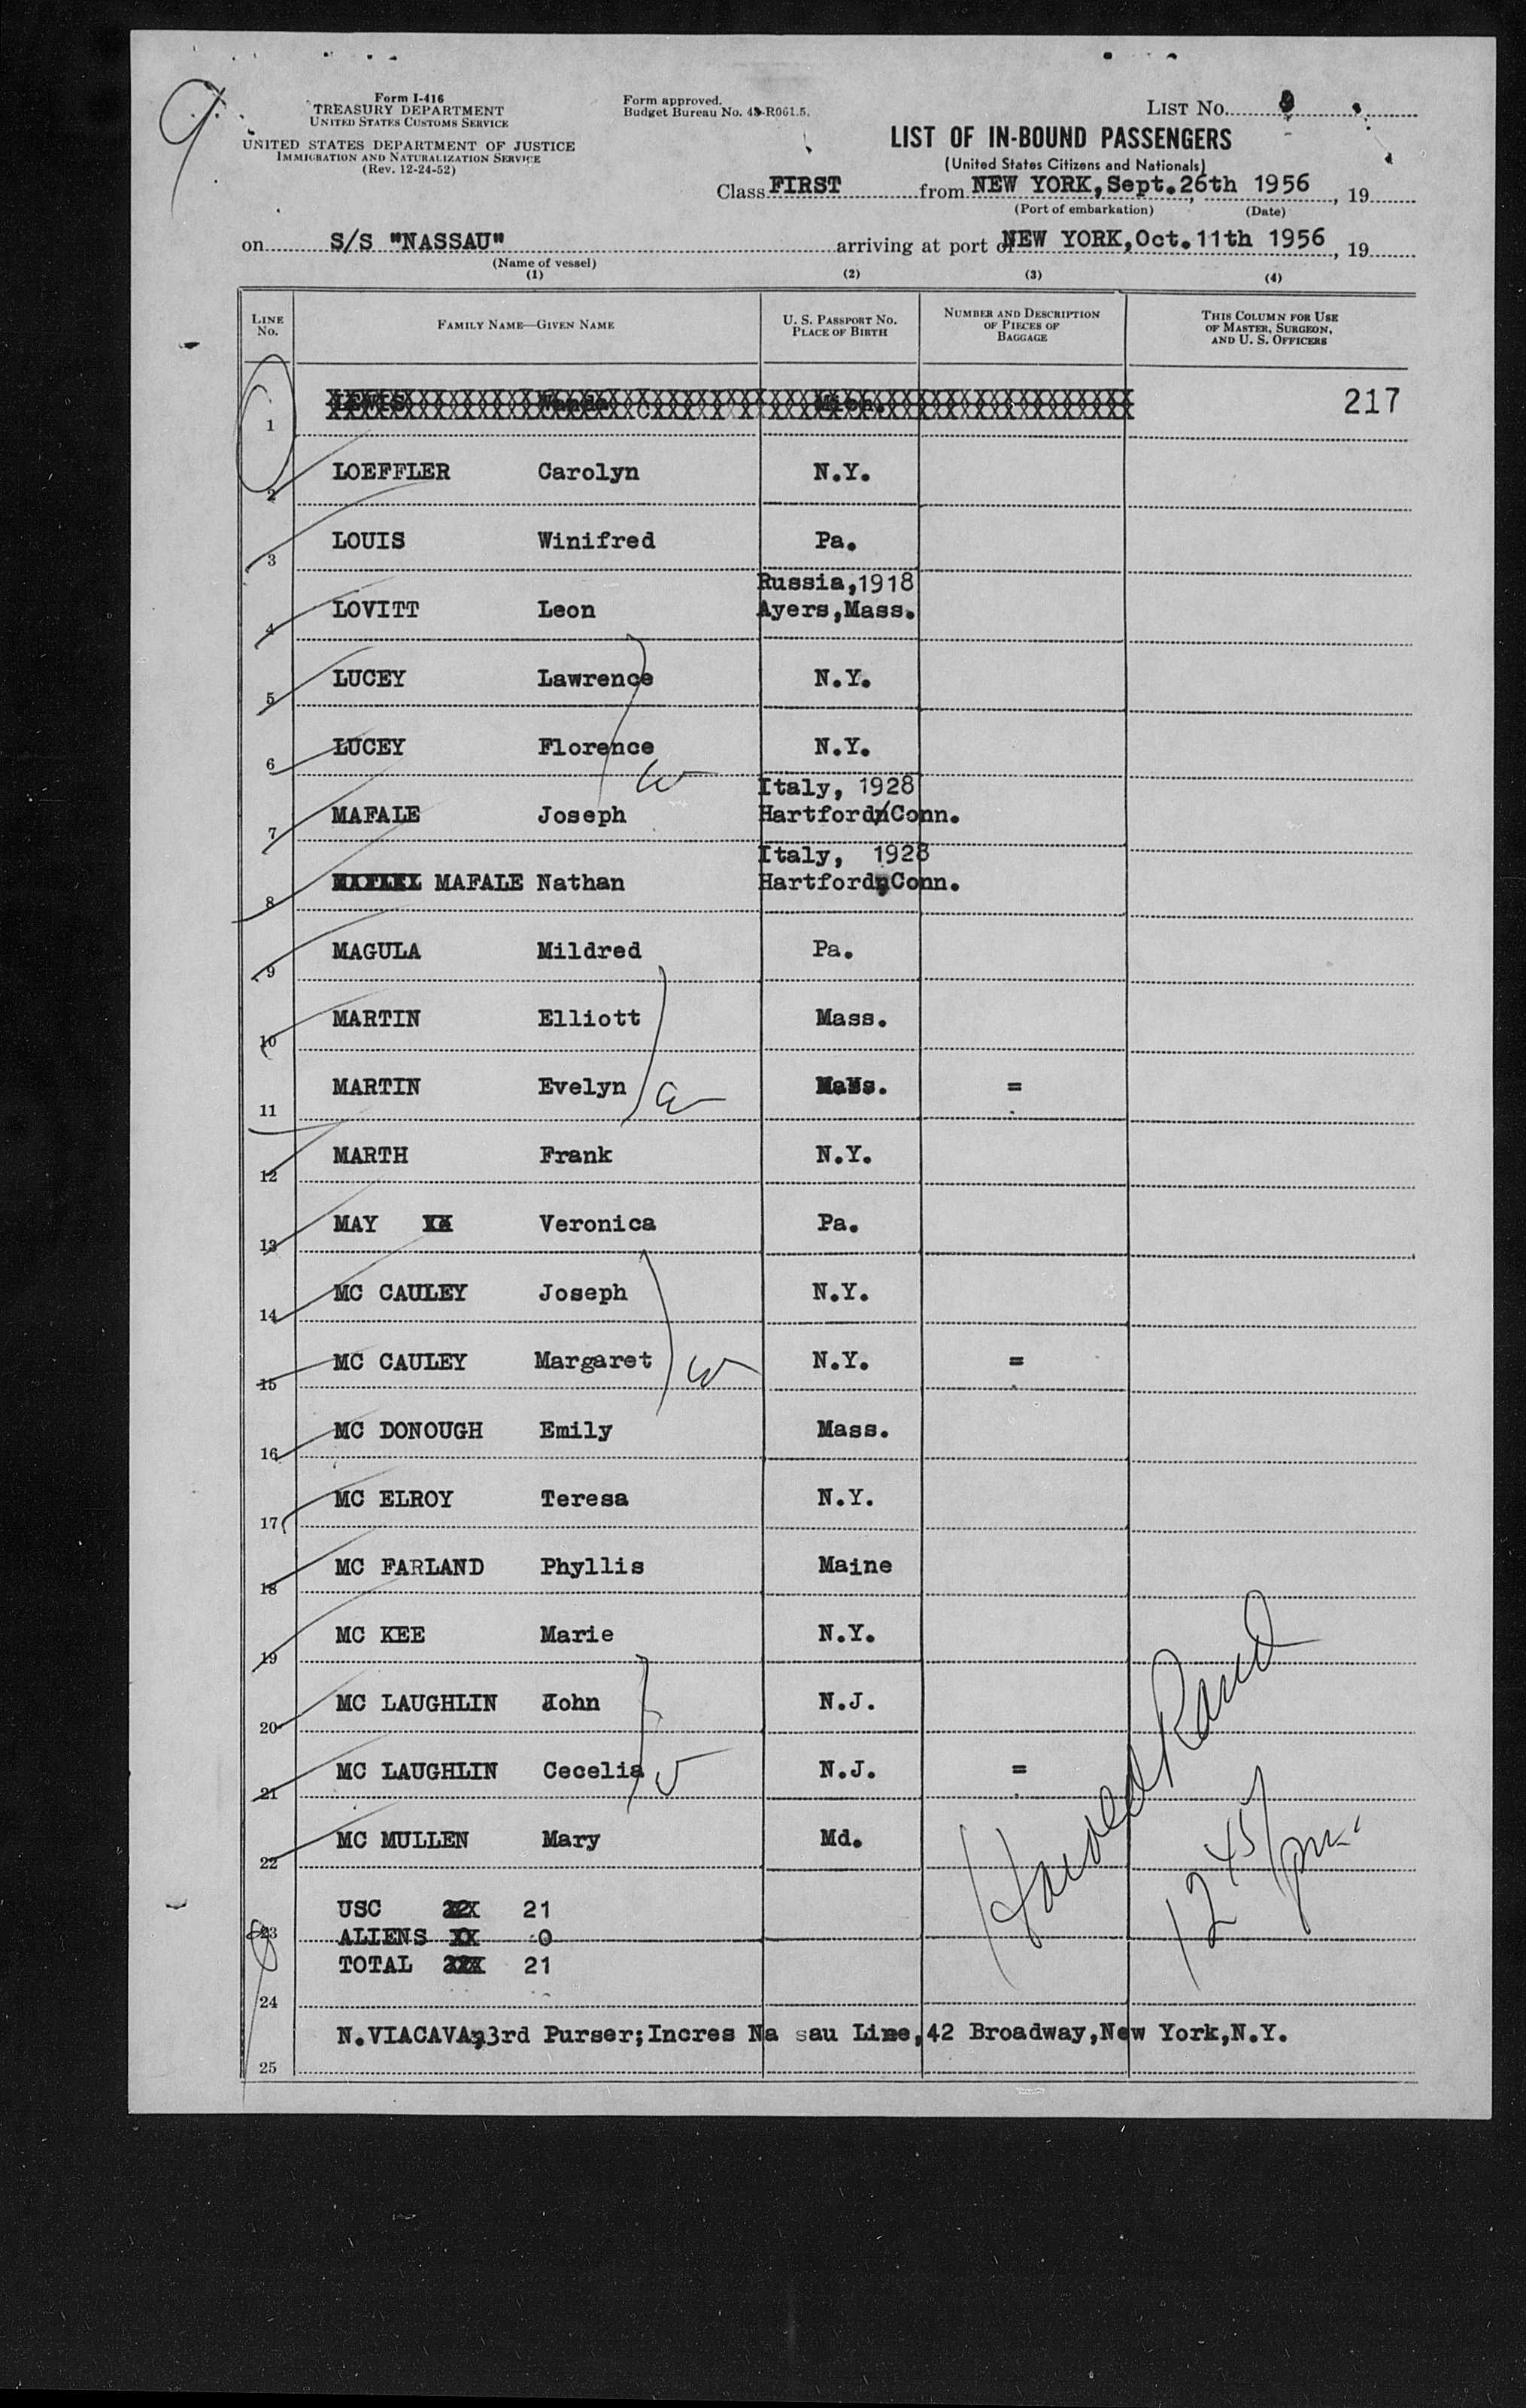 9
Form I-416
TREASURY DEPARTMENT
UNITED STATES CUSTOMS SERVICE
UNITED STATES DEPARTMENT OF JUSTICE
IMMIGRATION AND NATURALIZATION SERVICE
(Rev. 12-24-52)
Form approved.
Budget Bureau No. 43-R061.5.
LIST NO.
LIST OF IN-BOUND PASSENGERS
(United States Citizens and Nationals)
Class FIRST from NEW YORK, Sept. 26th 1956, 19
(Port of embarkation) (Date)
on S/S "NASSAU" arriving at port of NEW YORK, Oct. 11th 1956, 19
(Name of vessel)
(1) (2) (3) (4)
LINE NO. FAMILY NAME—GIVEN NAME U. S. PASSPORT NO. PLACE OF BIRTH NUMBER AND DESCRIPTION OF PIECES OF BAGGAGE THIS COLUMN FOR USE OF MASTER, SURGEON, AND U. S. OFFICERS
1 LEWIS 217
2 LOEFFLER Carolyn N.Y.
3 LOUIS Winifred Pa.
Russia, 1918
4 LOVITT Leon Ayers, Mass.
5 LUCEY Lawrence N.Y.
6 LUCEY Florence N.Y.
Italy, 1928
7 MAFALE Joseph Hartford Conn.
Italy, 1928
8 MAFALE Nathan Hartford Conn.
9 MAGULA Mildred Pa.
10 MARTIN Elliott Mass.
11 MARTIN Evelyn Mass. =
12 MARTH Frank N.Y.
13 MAY Veronica Pa.
14 MC CAULEY Joseph N.Y.
15 MC CAULEY Margaret N.Y. =
16 MC DONOUGH Emily Mass.
17 MC ELROY Teresa N.Y.
18 MC FARLAND Phyllis Maine
19 MC KEE Marie N.Y.
20 MC LAUGHLIN John N.J.
21 MC LAUGHLIN Cecelia N.J. =
22 MC MULLEN Mary Md.
Harold
12 45 pm.
USC 21
23 ALIENS 0
TOTAL 21
24
N.VIACAVA, 3rd Purser; Incres Na sau Line, 42 Broadway, New York, N.Y.
25